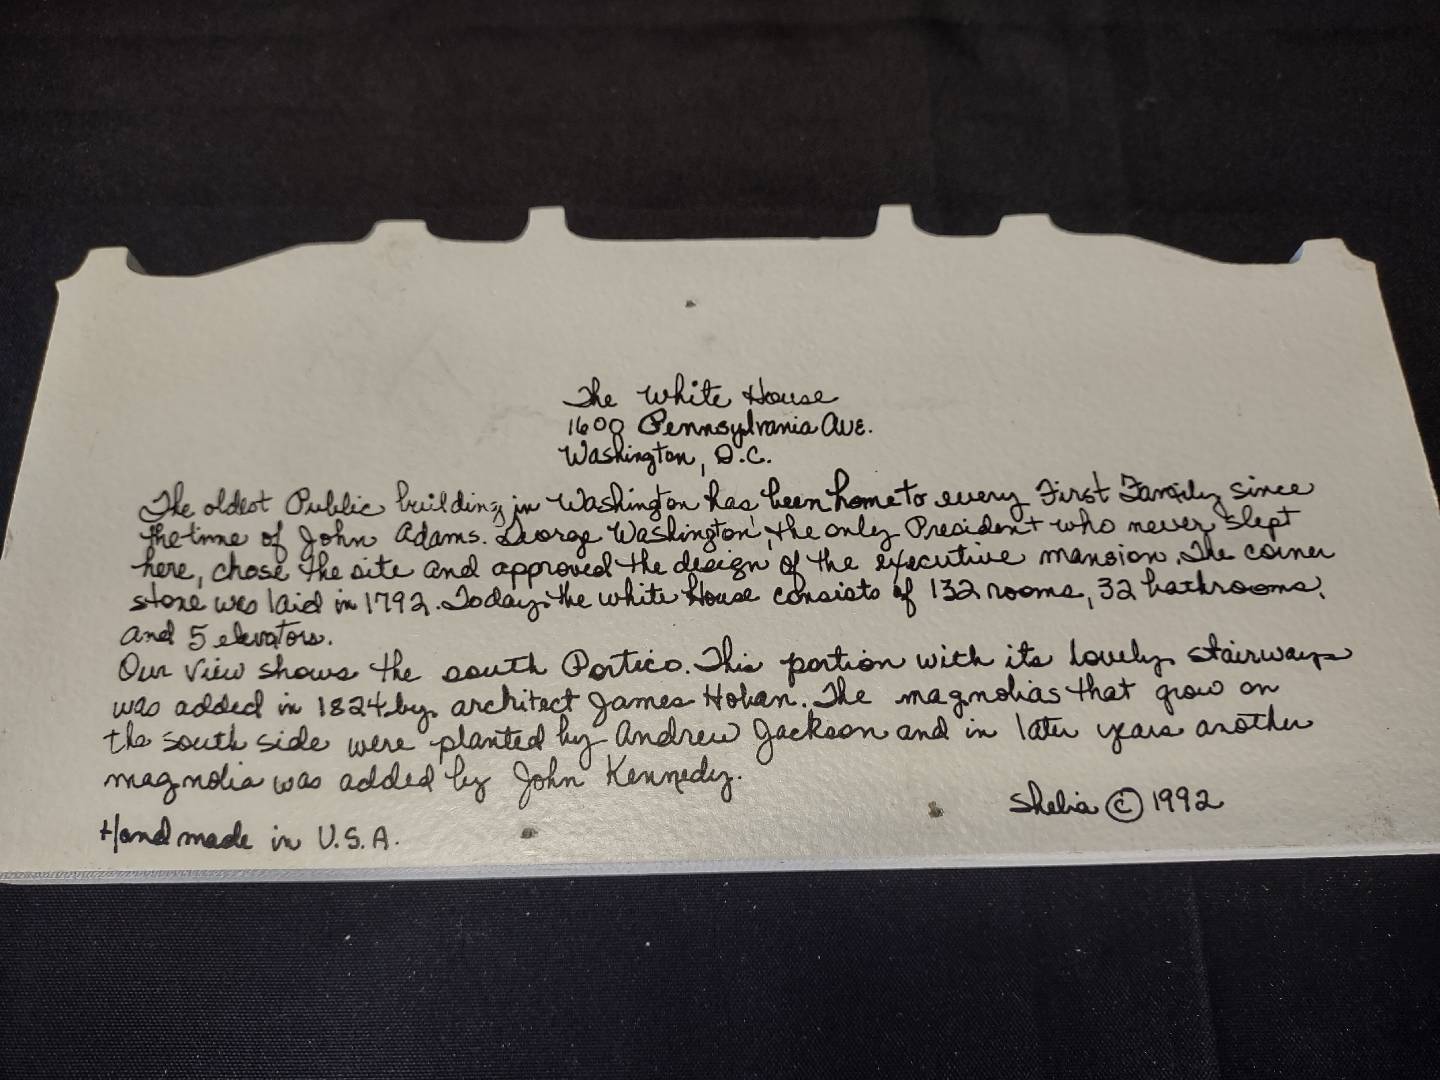 The White House
1600 Pennsylvania Ave.
Washington, D.C.
The oldest Public building in Washington has been home to every First Family since
the time of John Adams. George Washington, the only President who never slept
here, chose the site and approved the design of the executive mansion. The corner
stone was laid in 1792. Today, the White House consists of 132 rooms, 32 bathrooms,
and 5 elevators.
Our view shows the south Portico. This portion with its lovely stairways
was added in 1824 by architect James Hoban. The magnolias that grow on
the south side were planted by Andrew Jackson and in later years another
magnolia was added by John Kennedy.
Shelia © 1992
Hand made in U.S.A.